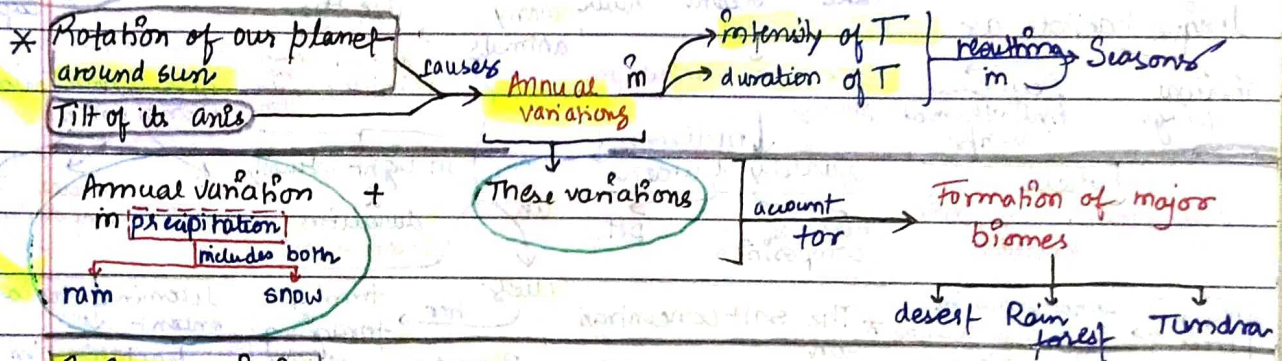 * Rotation of our planet
around sun
Tilt of its axis
causes
Annual
variations
in
intensity of T
duration of T
resulting
in
Seasons
Annual variation
in precipitation
includes both
rain
snow
+
These variations
account
for
Formation of major
biomes
desert
Rain
forest
Tundra